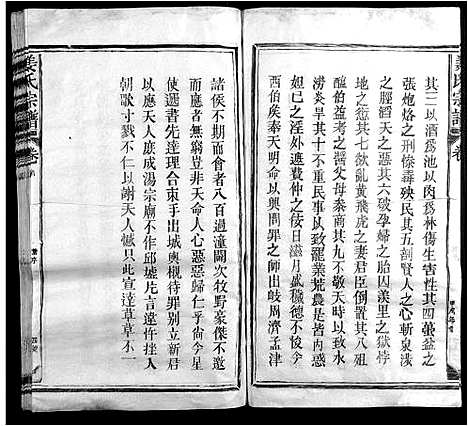 姜氏宗譜
卷
其三以酒為池以肉為林傷生害性其四蠆盆之
張炮烙之刑慘毒殃民其五剖賢人之心斬泉淺
之脛滔天之惡其六破孕婦之胎囚羑里之
之悲其七欲亂黃飛虎之妻君臣倒置其八殂
醢伯益考之醬父母黍商其九不敬天命沉湎
淆炎暑其十不重民事以致罷業荒農是皆內惑
妲己之淫外遮費仲之佞日滋月甚穢德不悛今
西伯矦奉天明命以興問罪之師出岐周濟孟津
諸侯不期而會者八百過潼關次牧野豪傑不邀
自來者無窮豈非天命人心惡惡歸仁乎尚今星
使選書先達理合束手出城輿櫬待罪別立新君
以應天人庶成湯宗廟不作邱墟片言違忤挫入
朝歌寸戮不仁以謝天人憾只此宣達草草不一
姜氏宗譜
卷